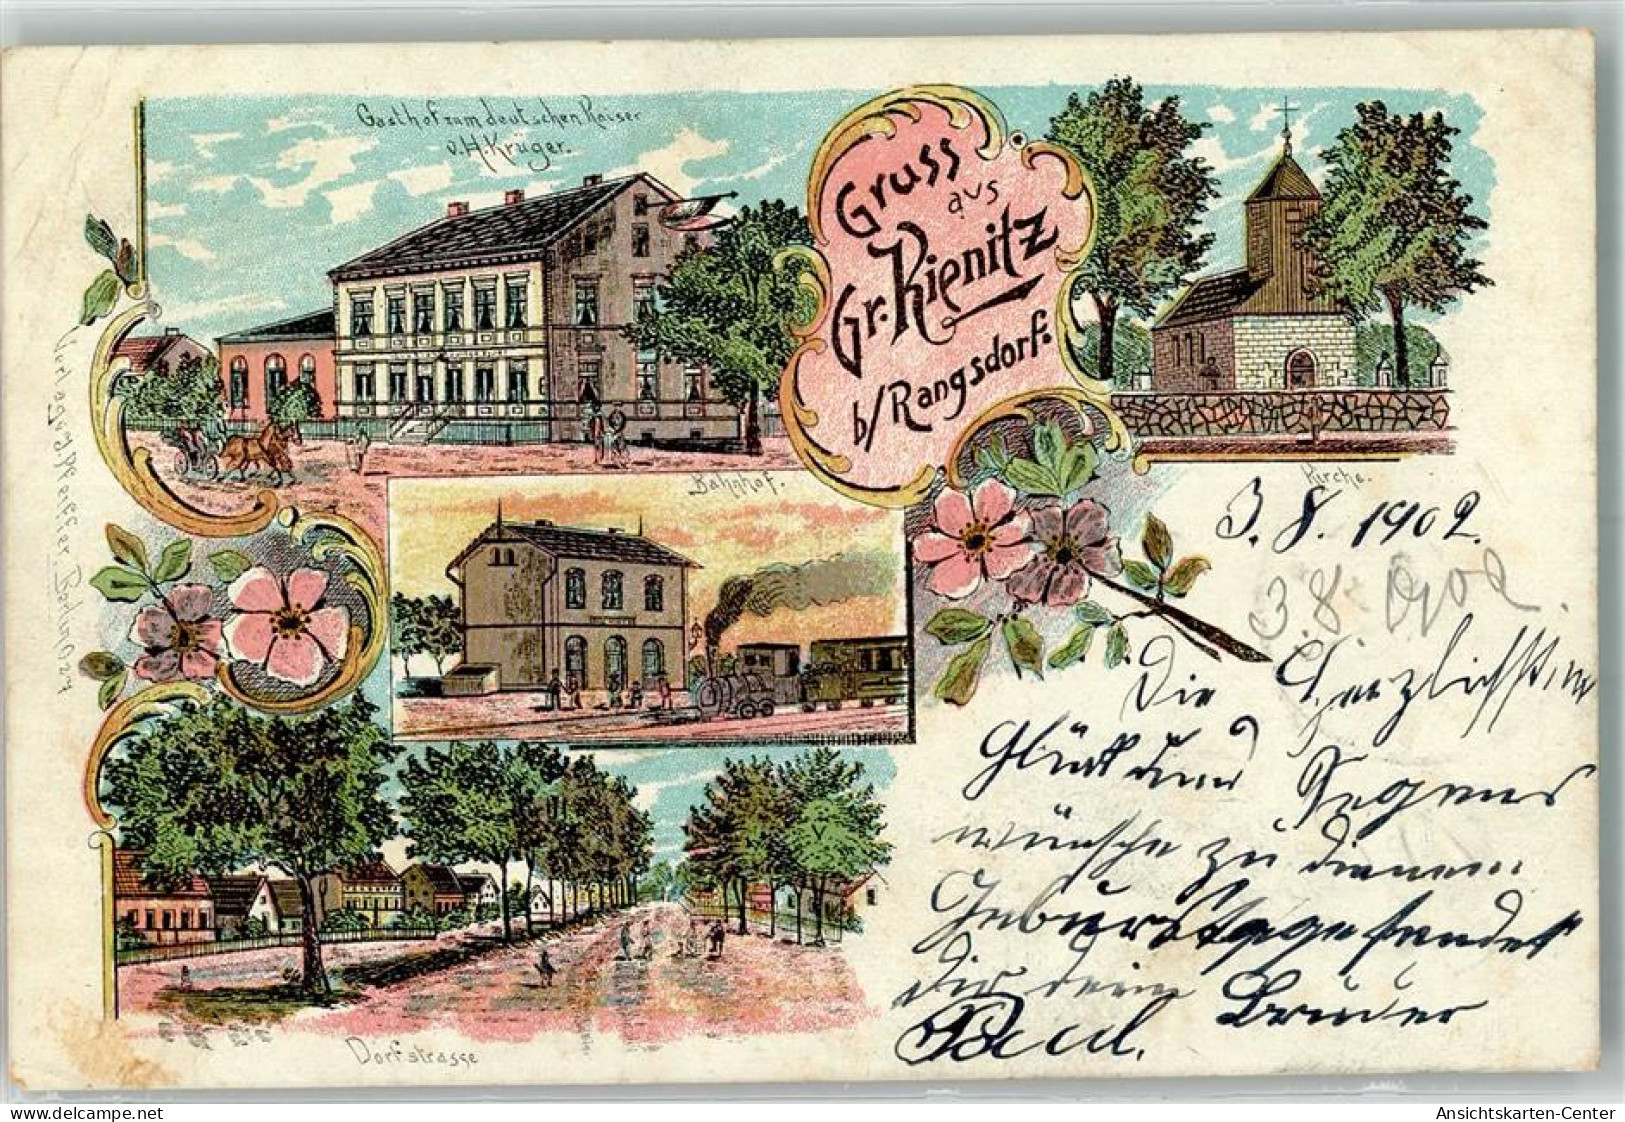 Gasthof zum deutschen Kaiser
v. H. Krüger.
Gruss
aus
Gr. Kienitz
b/Rangsdorf.
Kirche.
Bahnhof.
Dorfstrasse
Verlag v. G. Pfeiffer. Berlin O 27
3. 8. 1902.
3. 8. 1902
Die Herzlichsten
Glück und Segens
wünsche zu Deinem
Geburtstage sendet
Dir dein Bruder
Paul.
Ansichtskarten-Center